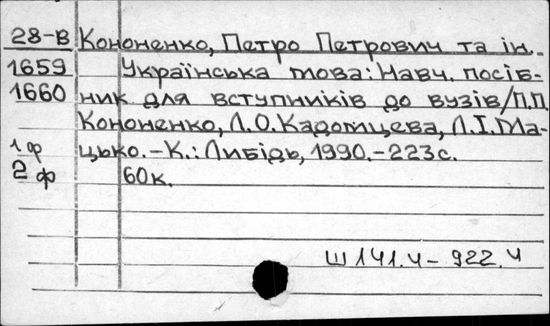 28-В Кононенко, Петро Петрович та ін.
1659 Українська мова: Навч. посіб-
1660 ник для вступників до вузів/П.П.
Кононенко, Л.О.Кадомцева, Л.І.Ма-
1ф цько.-К.: Либідь, 1990.-223с.
2ф 60к.
Ш141.4-922.4